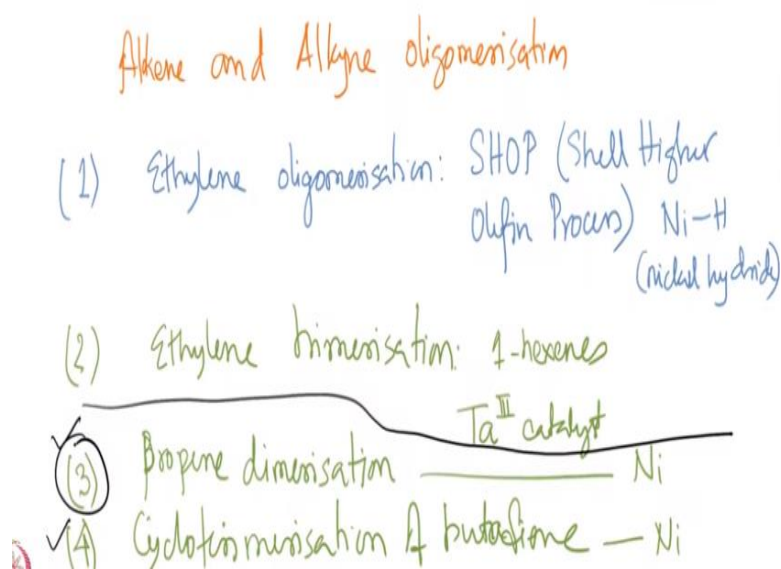 Alkene and Alkyne oligomerisation
(1) Ethylene oligomerisation: SHOP (Shell Higher
Olefin Process) Ni-H
(nickel hydride)
(2) Ethylene trimerisation: 1-hexenes
Ta^III catalyst
(3) Propene dimerisation —— Ni
(4) Cyclotrimerisation of butadiene — Ni